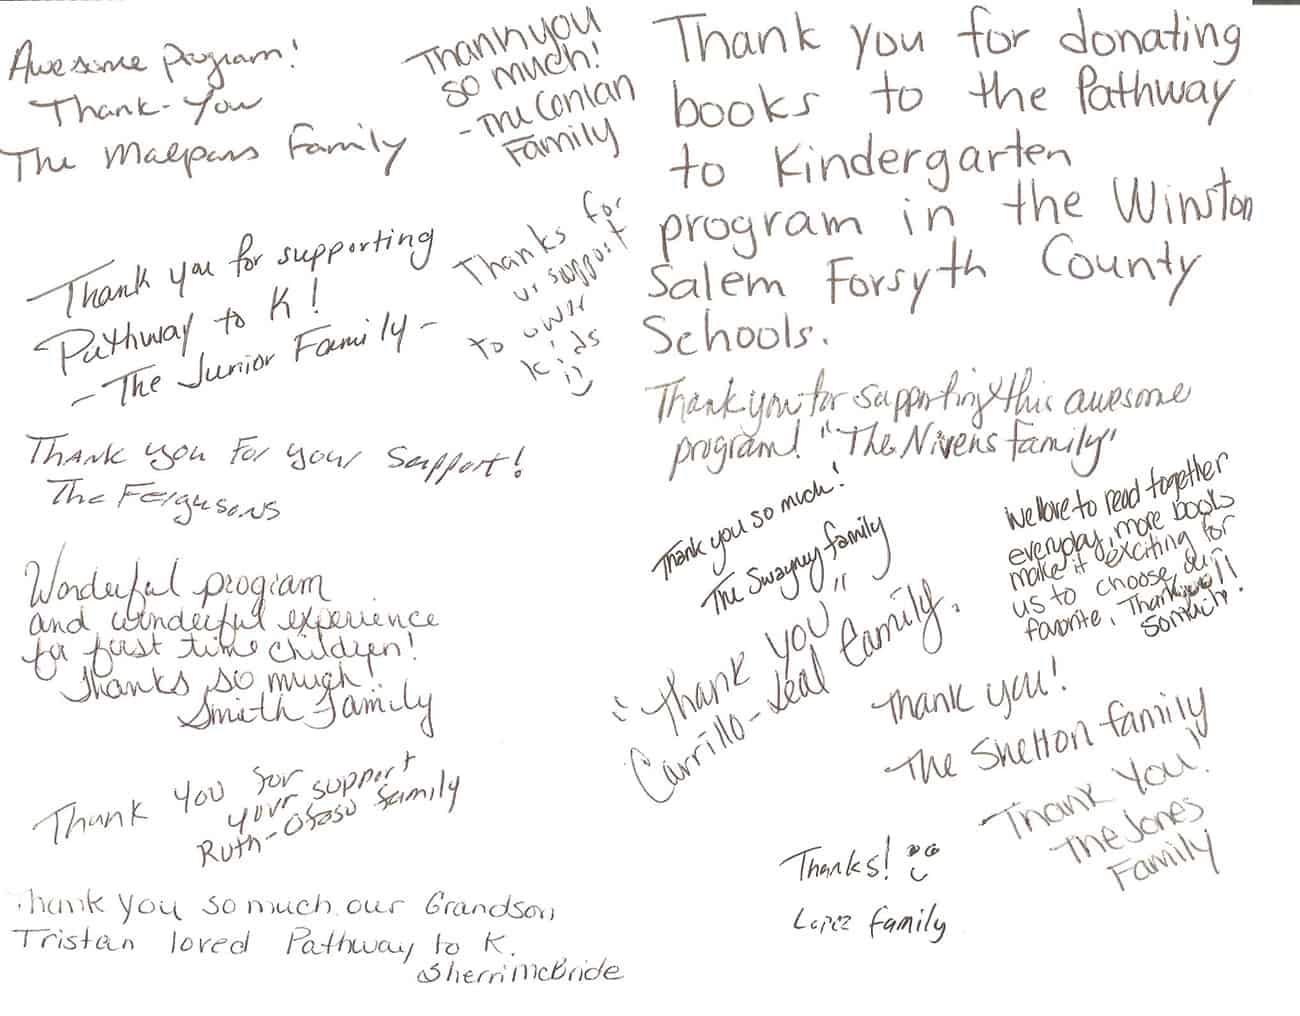 Awesome program!
Thank-You
The Malpass Family
Thank you
so much!
- The Conlan
Family
Thank you for donating
books to the Pathway
to Kindergarten
program in the Winston
Salem Forsyth County
Schools.
Thank you for supporting
Pathway to K!
- The Junior Family -
Thanks for
ur support
to owr
kids
Thank you for supporting this awesome
program! "The Nivens family"
Thank you for your support!
The Fergusons
Thank you so much!
The Swayney family
We love to read together
everyday, more books
make it exciting for
us to choose our
favorite. Thank you!!
So much!
Wonderful program
and wonderful experience
for first time children!
Thanks so much!
Smith Family
"Thank you"
Carrillo-Leal family.
Thank you!
The Shelton family
Thank You!
The Jones
Family
Thank you for
your support
Ruth-Ofasu family
Thanks!
Lopez family
Thank you so much our Grandson
Tristan loved Pathway to K.
Sherri McBride